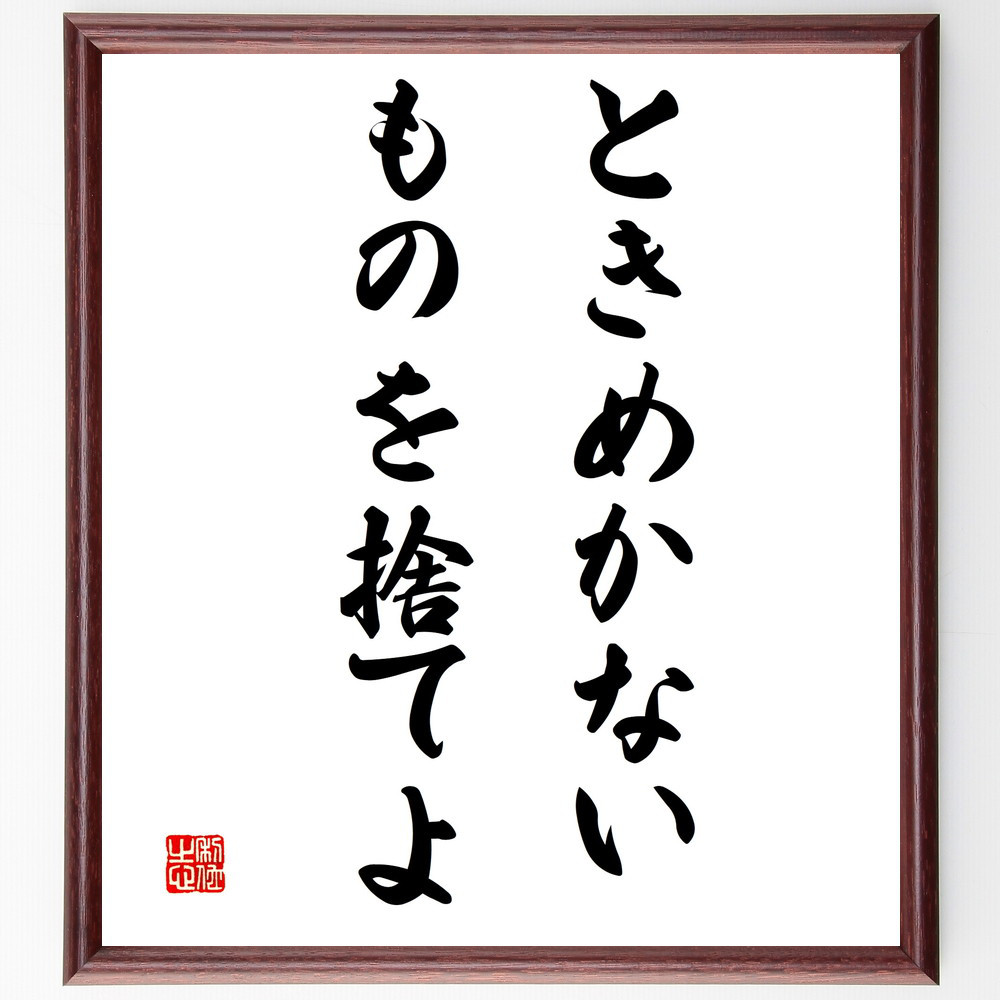 ときめかない
ものを捨てよ